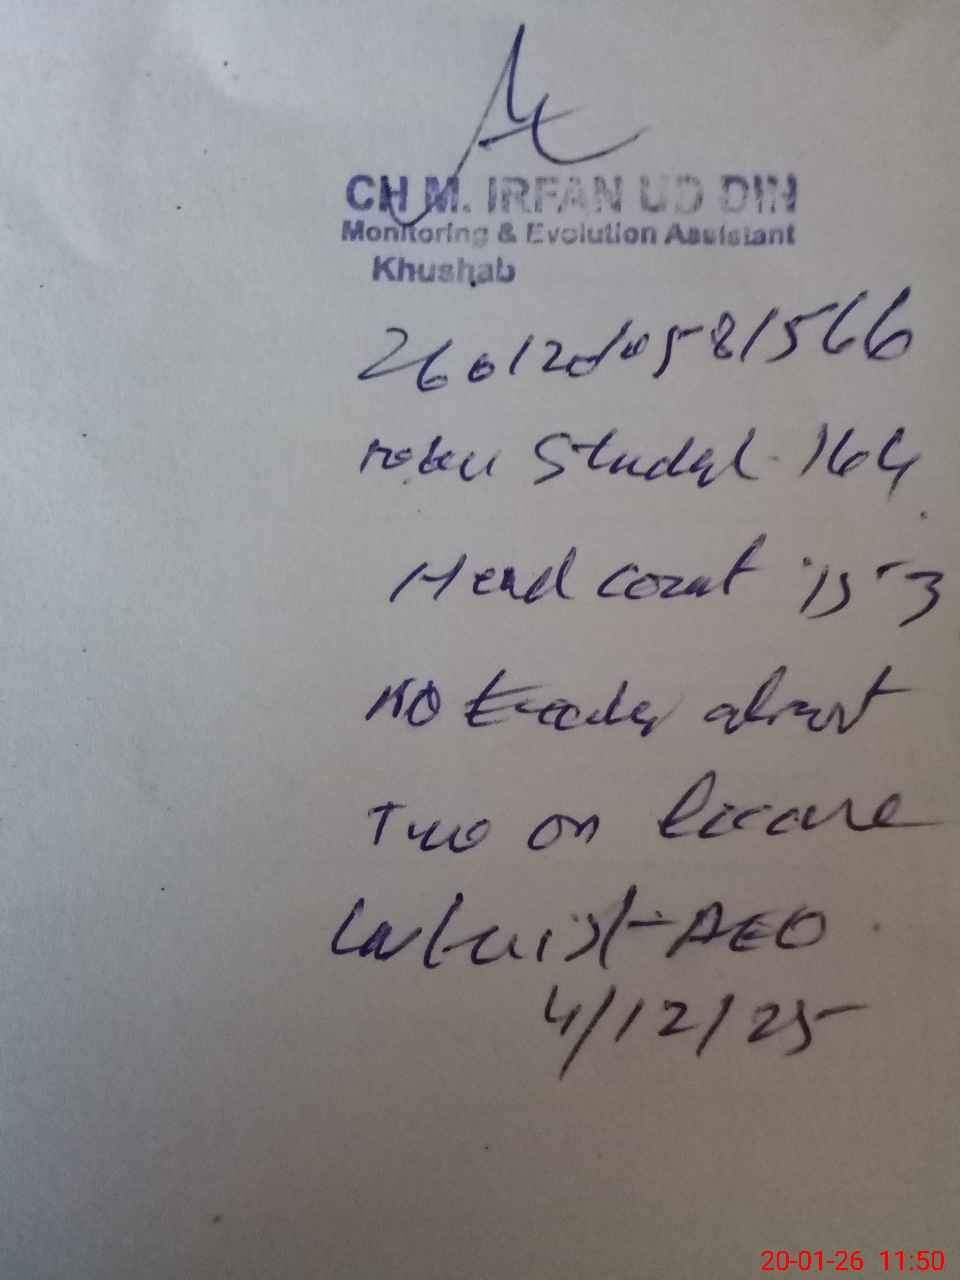 CH M. IRFAN UD DIN
Monitoring & Evolution Assistant
Khushab
Student 164
Head count 153
NO teacher absent
Two on leave
Last visit - AEO
4/12/25
20-01-26 11:50